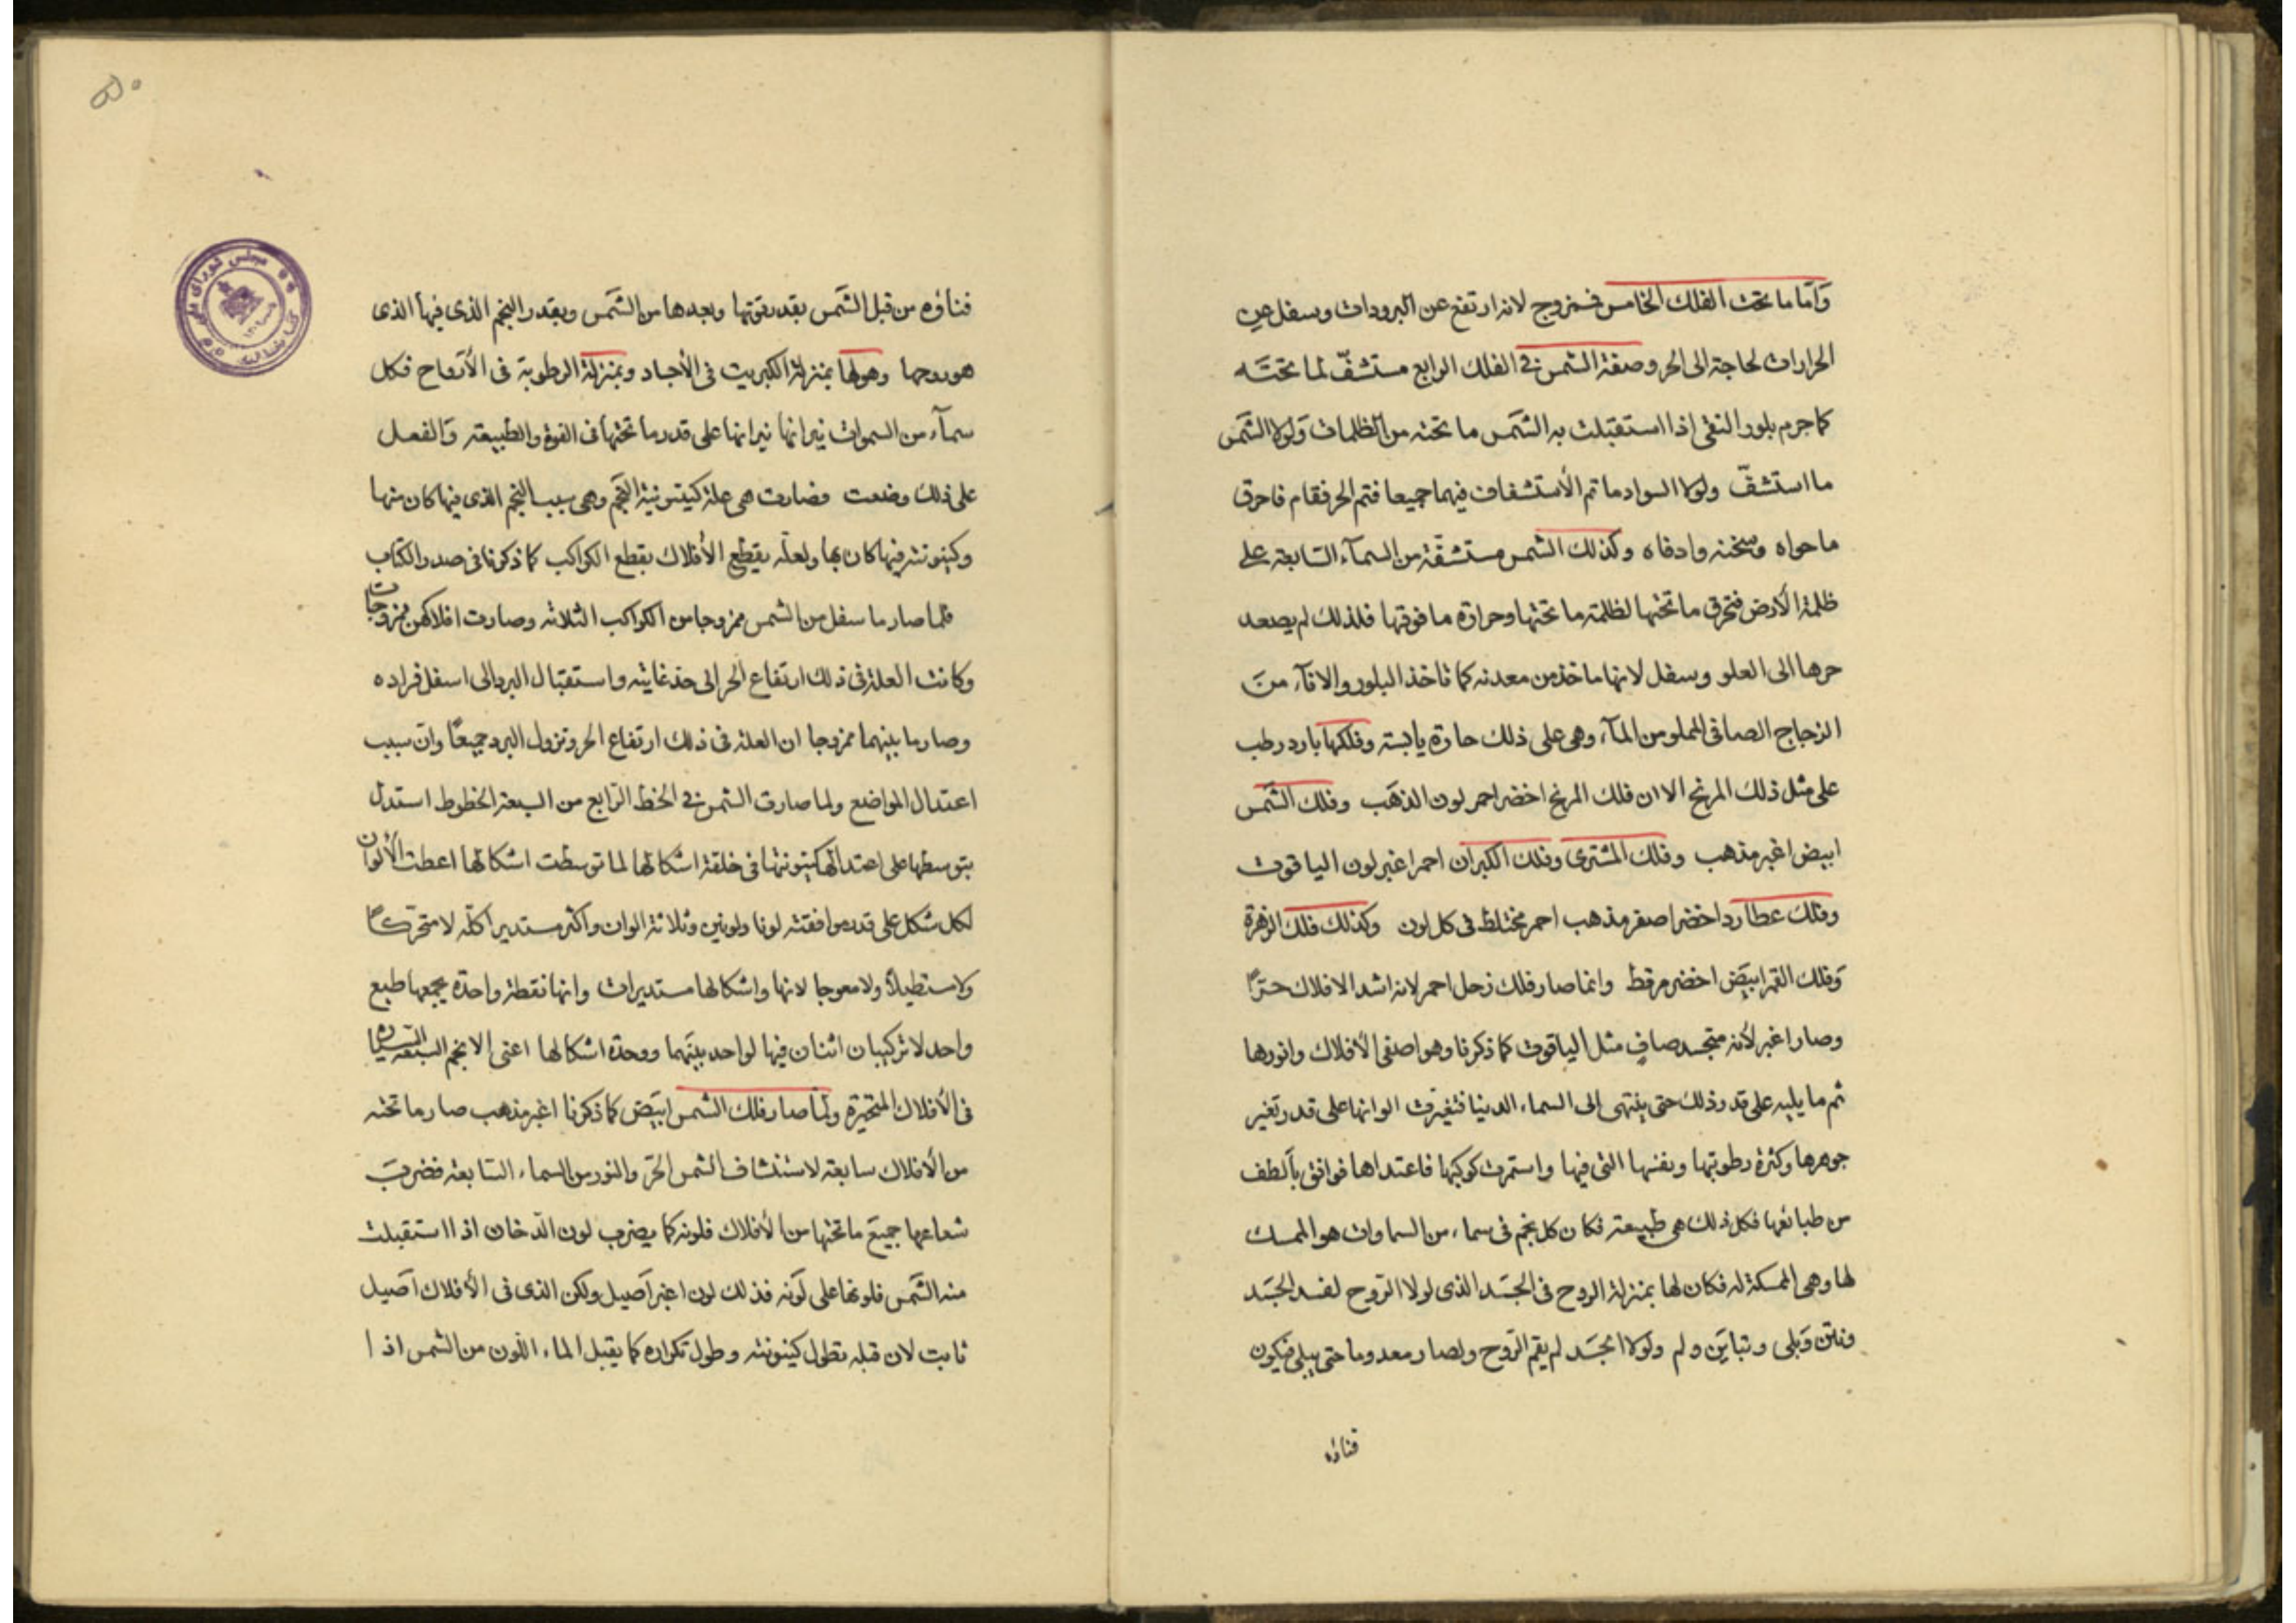 وَامّا ما تحت الفلك الخامس فمزوج لانه ارتفع عن البرودات وسفل عن
الحرارات لحاجة الى الحر وصفة الشمس فى الفلك الرابع مستشفّ لما تحتَه
كما جرم بلور النقى اذا استقبلت به الشمَس ما تحته من الظلمات وَلولا الشمَس
ما استشفّ ولولا السواد ما تم الأستشفاف فيهما جميعا فتم الحر فقام فاحرق
ما حواه وسخنه وادفاه وكذلك الشمس مستشفّة من السمآء السابعه على
ظلمة الأرض فتحرق ما تحتها لظلمة ما تحتها وحرارة ما فوقها فلذلك لم يصعد
حرها الى العلو وسفل لانها ماخذ من معدنه كما تاخذ البلور والانآء منَ
الزجاج الصافى المملو من المآء وهى على ذلك حارة يابسة وفلكها بارد رطب
على مثل ذلك المريخ الا ان فلك المريخ اخضر احمر لون الذهَب وفلك الشَمس
ابيض اغبر مذهب وفلك المشترى وفلك الكبران احمر اغبر لون الياقوت
وفلك عطارد اخضر اصفر مذهب احمر مختلط فى كل لون وكذلك فلك الزهرة
وَفلك القمر ابيَض اخضر مرقط وانما صار فلك زحل احمر لانه اشد الافلاك حَرّاً
وصار اغبر لأنه متجسد صافٍ مثل الياقوت كما ذكرنا وهو اصفى الأفلاك وانورها
ثم ما يليه على قدر ذلك حتى ينتهى الى السماء الدينا فتغيرّت الوانها على قدر تغير
جوهرها وكثرة رطوبتها ونفسها التى فيها واستمرت كوكبها فاعتداها فوافق بألطف
من طبائعها فكل ذلك هى طبيعته فكان كل نجم فى سماء من السماوات هو الممسك
لها وهى الممسكة له فكان لها بمنزلة الروح فى الجسَد الذى لولا الرّوح لفسد الجسَد
ونتن وَبلى وتبايَن ولم ولولا الجسَد لم يقم الرّوح ولصار معدوما حتى يبلى فيكون
فناؤه
فناؤه من قبل الشمَس بقدر قوتها وبعدها من الشمَس وبقدر النجم الذى فيها الذى
هو روحها وهو لها بمنزلة الكبريت فى الأجساد وبمنزلة الرطوبة فى الأرواح فكل
سمآء من السموات نيرانها نيرانها على قدر ما تحتها فى القوة والطبيعة وَالفعل
على ذلك وضعت فصارت هى علة كينونية النجَم وهى سبب النجم الذى فيها كان منها
وكينونته فيها كان بها ولعلّه بقطع الأفلاك بقطع الكواكب كما ذكرنا فى صدر الكتاب
فلما صار ما سفل من الشمس ممزوجا من الكواكب الثلاثه وصارت افلاكهن ممزوجات
وكانت العلة فى ذلك ارتفاع الحر الى حد غايته واستقبال البرد الى اسفل قراره
وصار ما بينهما ممزوجا ان العلة فى ذلك ارتفاع الحر وتزول البرد جميعًا وان سبب
اعتدال المواضع ولما صارت الشمس فى الخط الرّابع من السبعة الخطوط استدل
بتوسطها على اعتدالها كينونتها فى خلقة اشكالها لما توسطت اشكالها اعطت الألوان
لكل شكل على قدر موافقته لونا ولونين وثلاثة الوان واكثر مستديرا كلّه لا متحرّكاً
ولا مستطيلاً ولا معوجا لانها واشكالها مستديرات وانها نقطة واحدة يجمعها طبع
واحد لا تركيبان اثنان فيها لواحد بينَهما ووحدة اشكالها اعنى الانجم السبعة
فى الأفلاك المتحيّرة ولما صار فلك الشمس ابيَض كما ذكرنا اغبر مذهب صار ما تحته
من الأفلاك سابعة لاستنشاف الشمس الحرّ والنور من السماء السّابعة فضربتَ
شعاعها جميعَ ما تحتها من الأفلاك فلونه كما يضرب لون الدّخان اذا استقبلت
منه الشمَس فلونها على لَونه فذلك لون اغبر اَصيل ولكن الذى فى الأفلاك اَصيل
ثابت لان قبله بطول كينونته وطول تكراره كما يقبل الماء اللّون من الشمس اذا